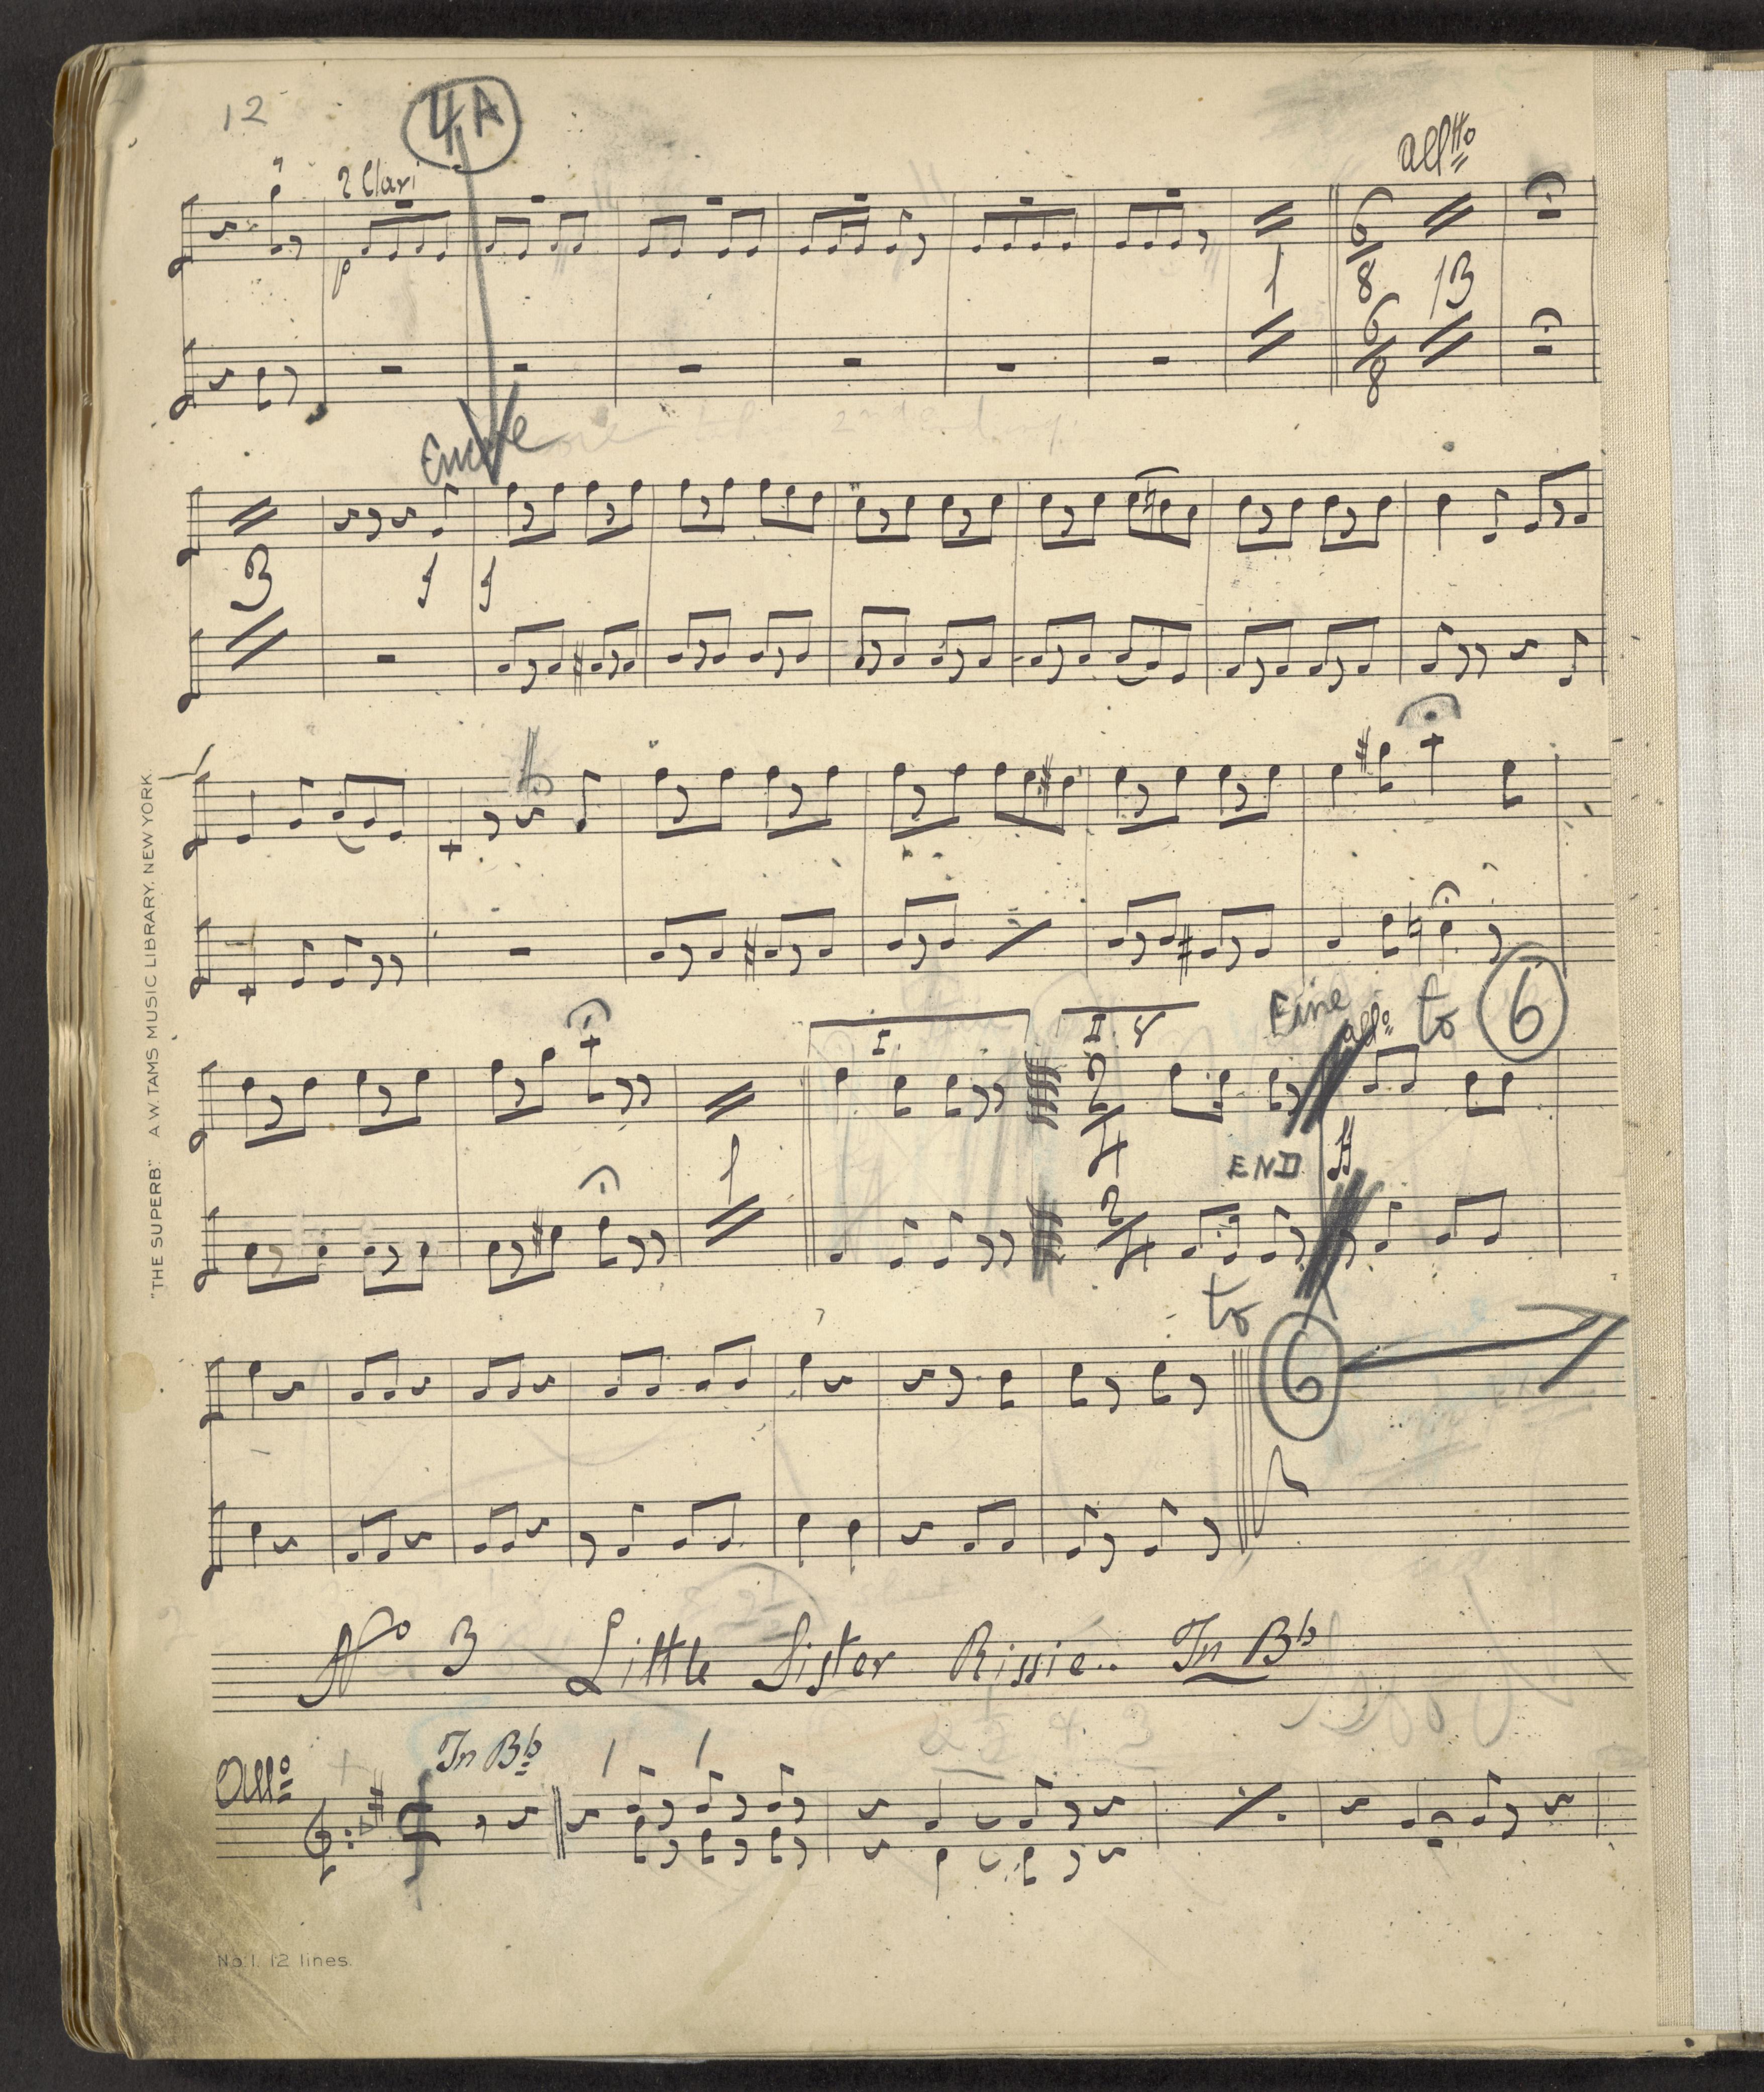 12
4A
2 Clari
Alltto
p
6
8
1
13
6
8
Encore
3
f f
Fine
Allo
to 6
I.
II.
2
4
1
END
ff
2
4
to
6
No 3 Little Sister Rissie.. In Bb
Allo
In Bb
1 1
"THE SUPERB" A.W. TAMS MUSIC LIBRARY. NEW YORK.
No. 1. 12 lines.